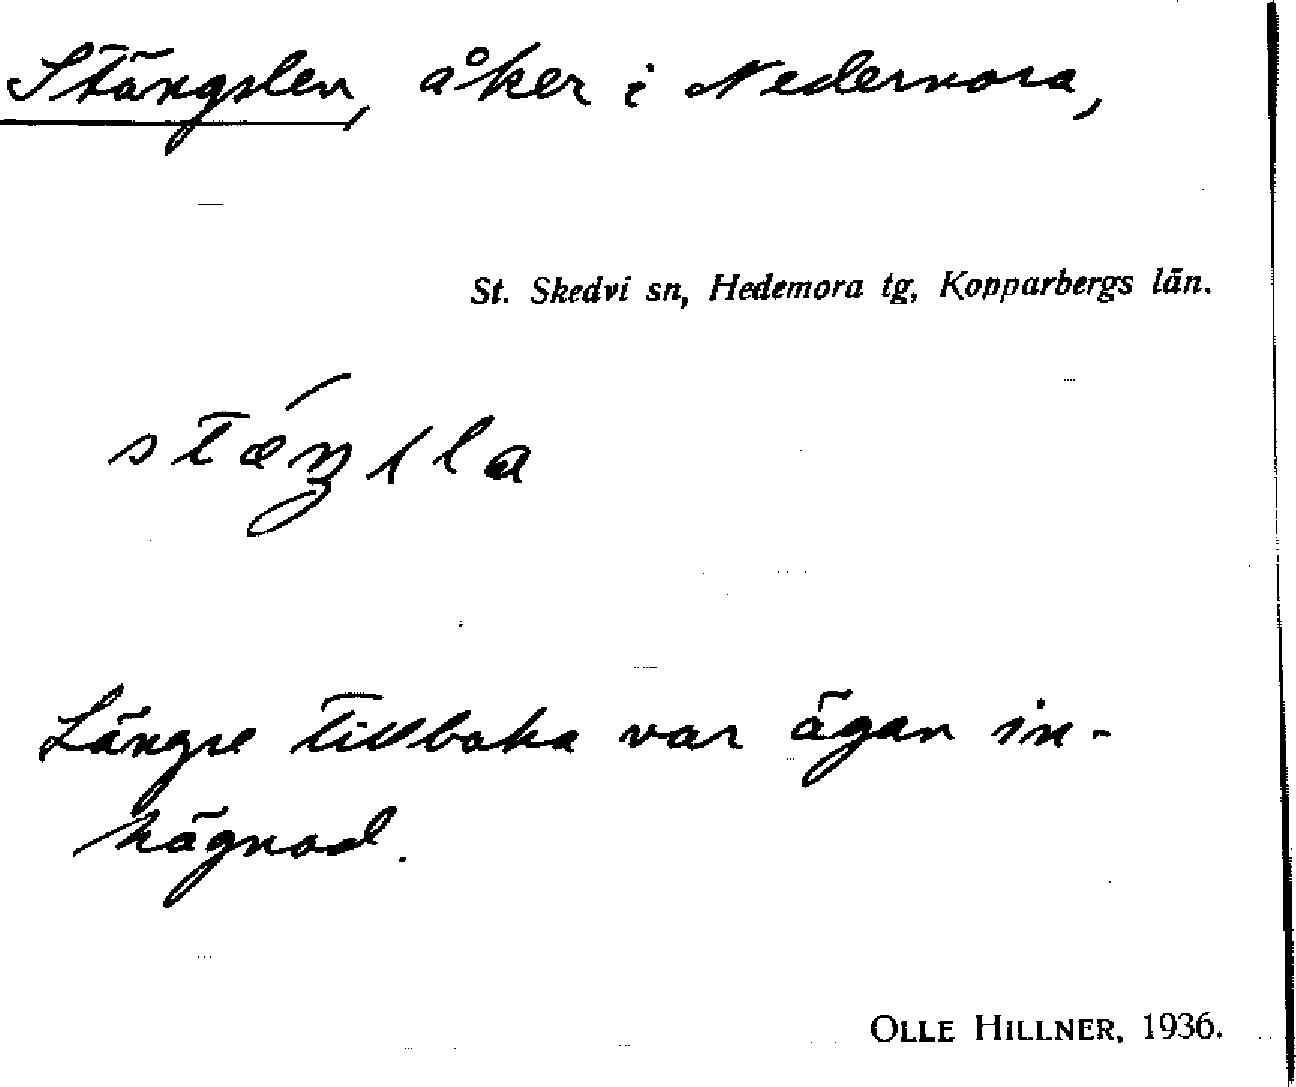 Stängslen, åker i Nedernora,
St. Skedvi sn, Hedemora tg, Kopparbergs län.
Längre tillbaka var ägan in-
hägnad.
OLLE HILLNER, 1936.